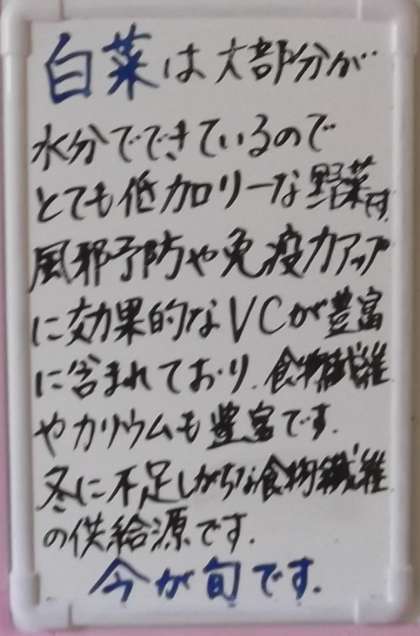 白菜は大部分が
水分でできているので
とても低カロリーな野菜です
風邪予防や免疫力アップ
に効果的なVCが豊富
に含まれており、食物繊維
やカリウムも豊富です.
冬に不足しがちな食物繊維
の供給源です.
今が旬です.